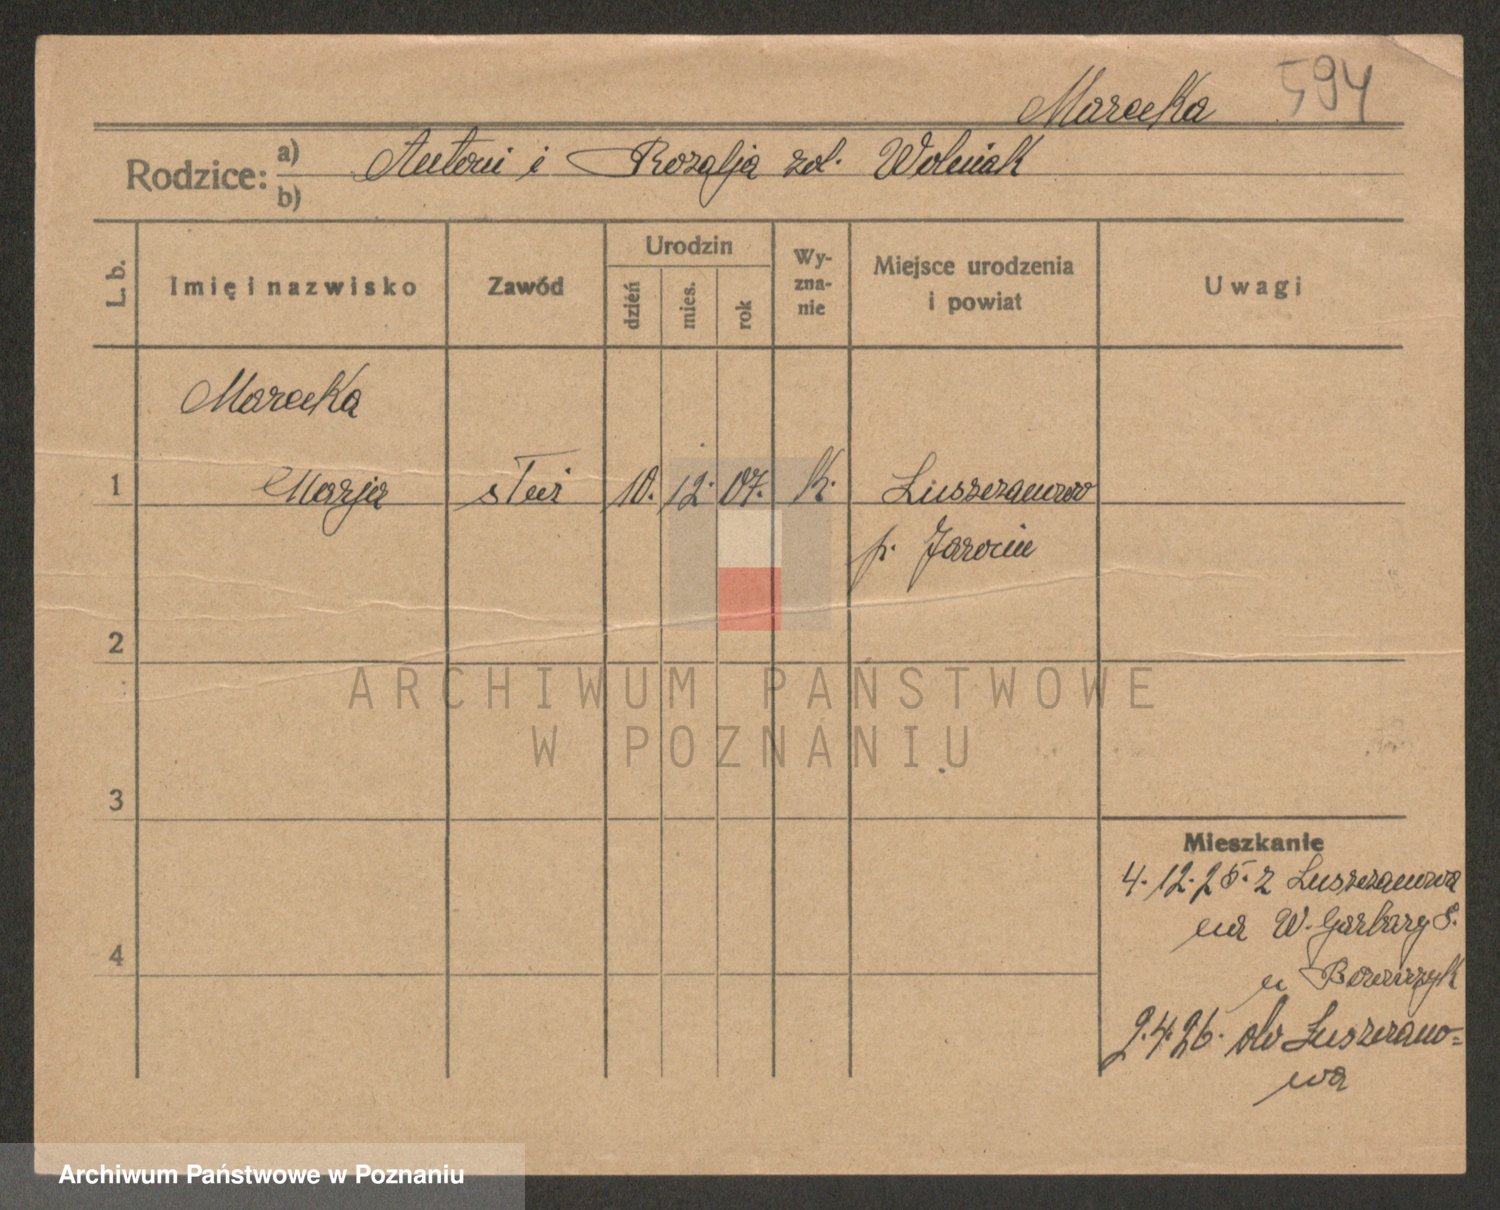 594
Marecka
Rodzice: a) Antoni i Rozalja zd. Woleniak
b)
L. b.
Imię i nazwisko
Zawód
Urodzin
dzień
mies.
rok
Wy-
zna-
nie
Miejsce urodzenia
i powiat
Uwagi
Marecka
1 Marja służ 10. 12. 07. K. Luszczanowo
p. Jarocin
2
3
4
Mieszkanie
4.12.25. z Luszczanowa
na W. Garbary 8.
u
2.4.26. do Luszczano=
wa
ARCHIWUM PAŃSTWOWE
W POZNANIU
Archiwum Państwowe w Poznaniu